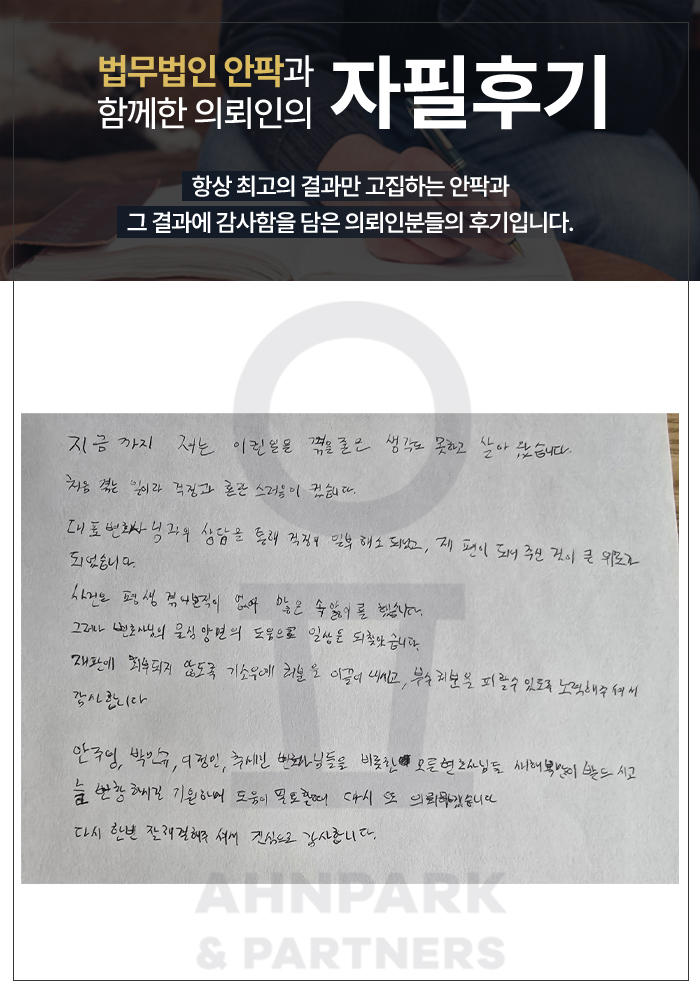 법무법인 안팍과
함께한 의뢰인의
자필후기
항상 최고의 결과만 고집하는 안팍과
그 결과에 감사함을 담은 의뢰인분들의 후기입니다.
지금 까지 저는 이런일을 겪을줄은 생각도 못하고 살아 왔습니다.
처음 겪는 일이라 걱정과 혼란 스러움이 컸습니다.
대표변호사님과의 상담을 통해 걱정이 일부 해소 되었고, 제 편이 되어 주신 것이 큰 위로가
되었습니다.
사건은 평생 겪어본적이 없어 많은 속앓이를 했습니다.
그러나 변호사님의 물심양면의 도움으로 일상을 되찾았습니다.
재판에 회부되지 않도록 기소유예 처분을 이끌어 내시고, 부수처분을 피할수 있도록 노력해주셔서
감사합니다
안주영, 박민규, 추세민 변호사님들을 비롯한 모든변호사님들 새해복많이 받으시고
늘 번창하시길 기원하며 도움이 필요할때 다시 또 의뢰하겠습니다
다시 한번 잘해결해주셔서 진심으로 감사합니다.
AHNPARK
& PARTNERS